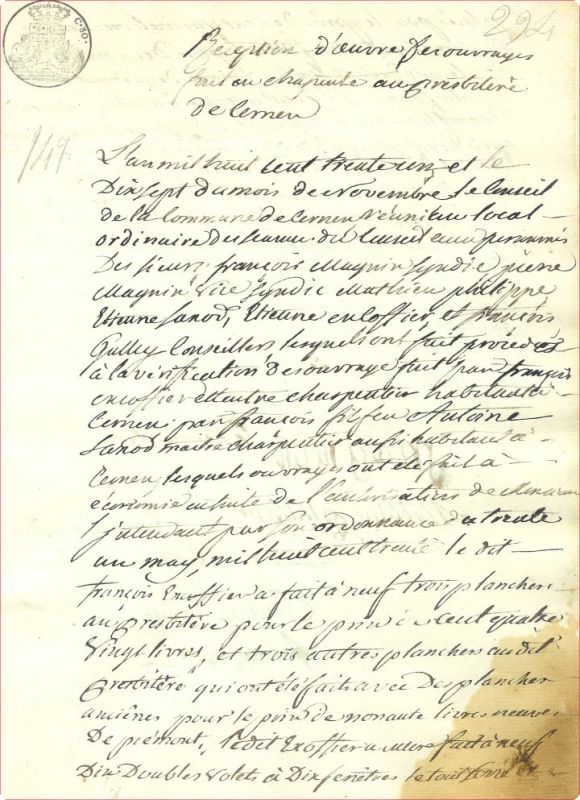 C.80.
294
Reception d'œuvre des ouvrages
fait en charpente au presbitère
de Cernex
149.
L'an mil huit cent trente un et le
Dix sept du mois de Novembre le Conseil
de la Commune de Cernex réuni au local
ordinaire des seances du Conseil aux personnes
Des sieurs françois Magnin syndic pierre
Magnin vice syndic Mathieu philippe
Etienne Sanod, Etienne excoffier, et françois
Gulley Conseillers lesquels ont fait procédés
à la vérification des ouvrage fait par françois
excoffier maitre charpentier habitant à
Cernex, par françois feu Antoine
Sanod maitre charpentier aussi habitant à
Cernex, lesquels ouvrages ont été fait à
économie en suite de l'authorisation de Monsieur
l'jntendant par son ordonnance du trente
un may, mil huit cent trente le dit
françois Excoffier a fait à neuf trois planchers
au presbitère pour le prix cent quatre
vingt livres, et trois autres planchers au dit
presbitère qui ont été faits avec des plancher
anciênes pour le prix de nonante livres neuves
De piémont, le dit Excoffier a encore fait à neuf
Dix Doubles volets à Dix fenêtres le tout